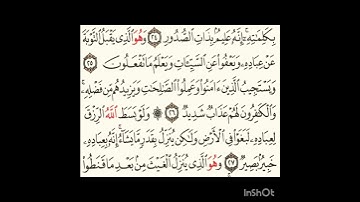 بِكَلِمَٰتِهِۦٓ ۚ إِنَّهُۥ عَلِيمٌۢ بِذَاتِ ٱلصُّدُورِ ٢٤ وَهُوَ ٱلَّذِى يَقْبَلُ ٱلتَّوْبَةَ
عَنْ عِبَادِهِۦ وَيَعْفُوا۟ عَنِ ٱلسَّيِّـَٔاتِ وَيَعْلَمُ مَا تَفْعَلُونَ ٢٥
وَيَسْتَجِيبُ ٱلَّذِينَ ءَامَنُوا۟ وَعَمِلُوا۟ ٱلصَّٰلِحَٰتِ وَيَزِيدُهُم مِّن فَضْلِهِۦ ۚ
وَٱلْكَٰفِرُونَ لَهُمْ عَذَابٌ شَدِيدٌ ٢٦ ۞ وَلَوْ بَسَطَ ٱللَّهُ ٱلرِّزْقَ
لِعِبَادِهِۦ لَبَغَوْا۟ فِى ٱلْأَرْضِ وَلَٰكِن يُنَزِّلُ بِقَدَرٍ مَّا يَشَآءُ ۚ إِنَّهُۥ بِعِبَادِهِۦ
خَبِيرٌۢ بَصِيرٌ ٢٧ وَهُوَ ٱلَّذِى يُنَزِّلُ ٱلْغَيْثَ مِنۢ بَعْدِ مَا قَنَطُوا۟
InShOt